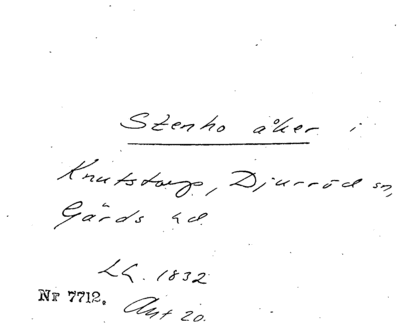 Stenho åker i
Knutstorp, Djurröd sn,
Gärds hd
LH. 1832
Nr 7712. Ant 20.